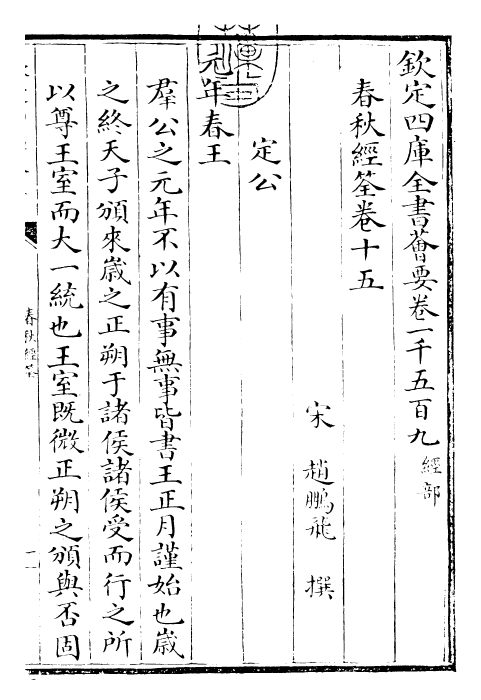 欽定四庫全書薈要卷一千五百九經部
春秋經筌卷十五
宋 趙鵬飛 撰
定公
元年春王
羣公之元年不以有事無事皆書王正月謹始也歲
之終天子頒來歲之正朔于諸侯諸侯受而行之所
以尊王室而大一統也王室既微正朔之頒與否固
春秋經筌